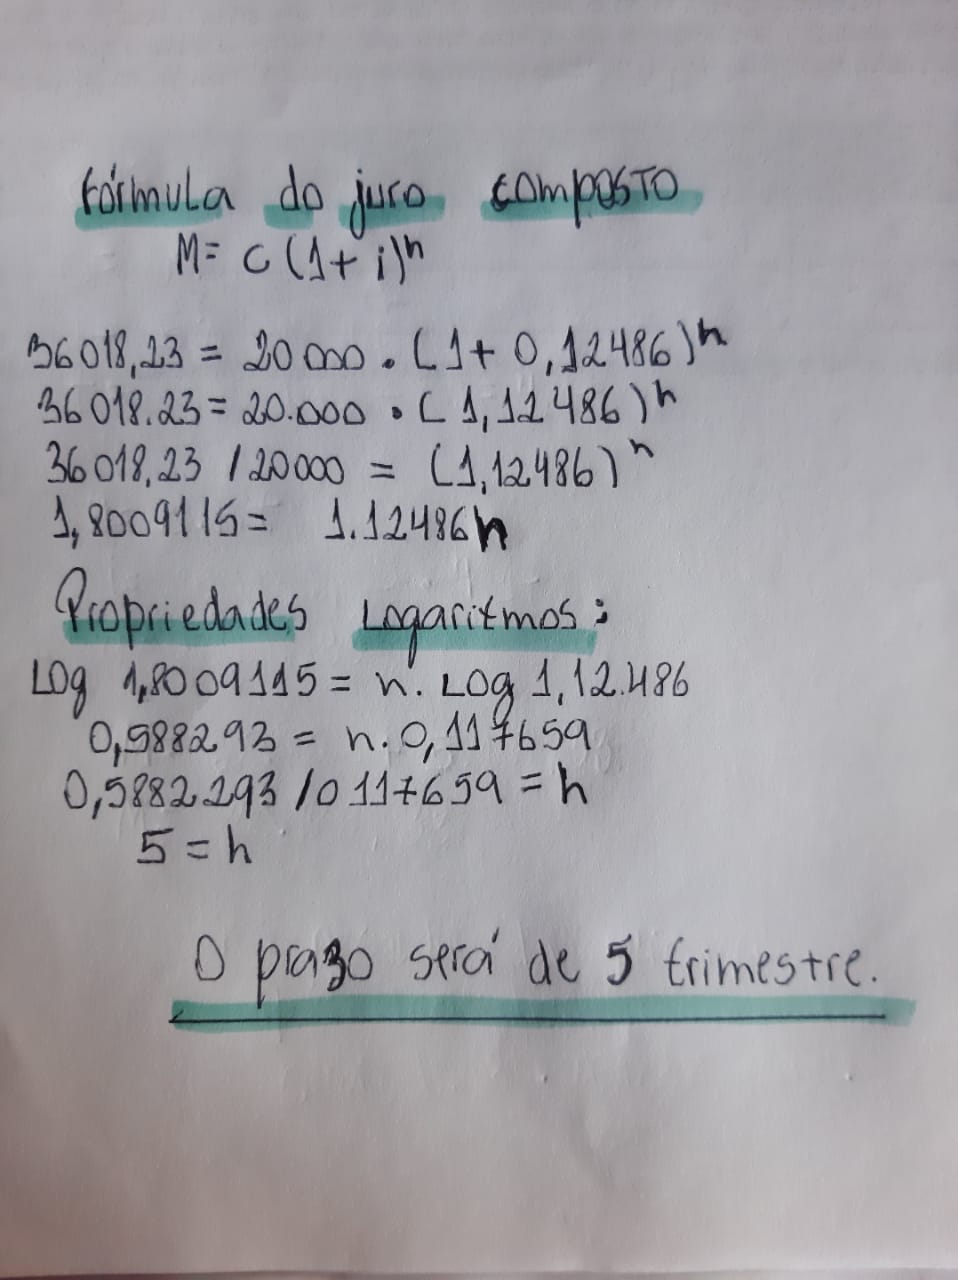 fórmula do juro composto
M= C (1+i)ⁿ
36018,23 = 20000 . (1+ 0,12486)ⁿ
36018.23 = 20.000 . (1,12486)ⁿ
36018,23 / 20000 = (1,12486)ⁿ
1,8009115 = 1.12486n
Propriedades Logaritmos:
Log 1,8009115 = n. Log 1,12.486
0,588293 = n. 0,117659
0,5882293 / 0117659 = n
5 = n
O prazo será de 5 trimestre.